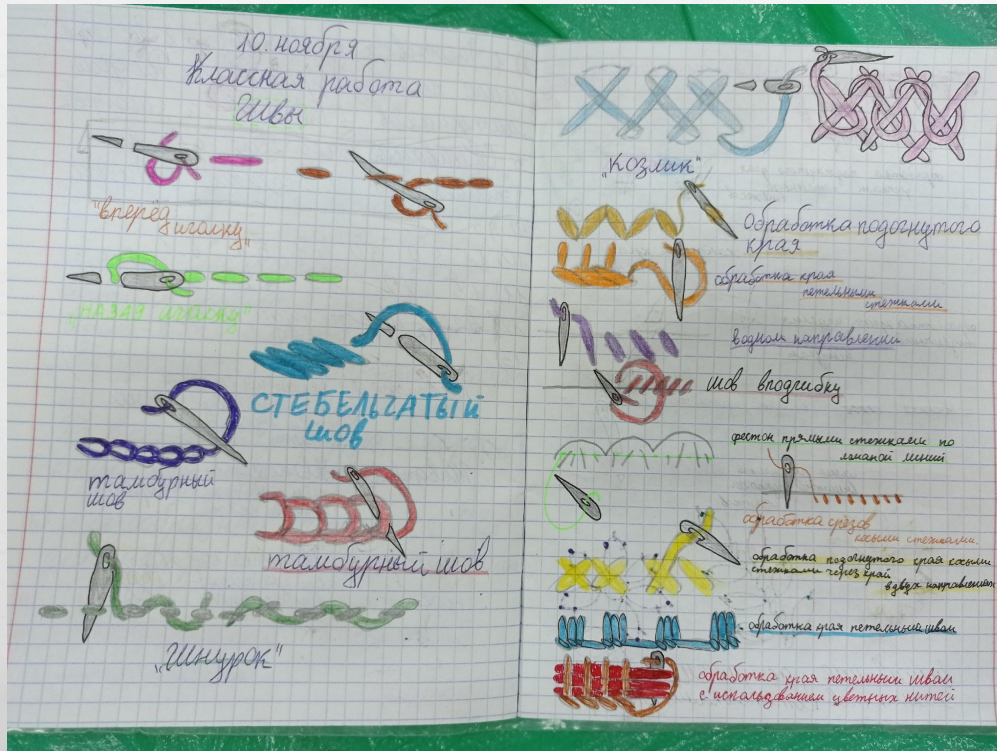 10. ноября
Классная работа
Швы
"вперёд
иголку"
"назад иголку"
СТЕБЕЛЬЧАТЫЙ
шов
тамбурный
шов
тамбурный шов
"Шнурок"
"козлик"
Обработка подогнутого
края
обработка края
петельными
стежками
водном направлении
шов вподгибку
фестон прямыми стежками по
ломаной линий
обработка срезов
косыми стежками.
обработка подогнутого края косыми
стежками через край
вдвух направлениях
обработка края петельный швом
обработка края петельным швом
с использованием цветных нитей